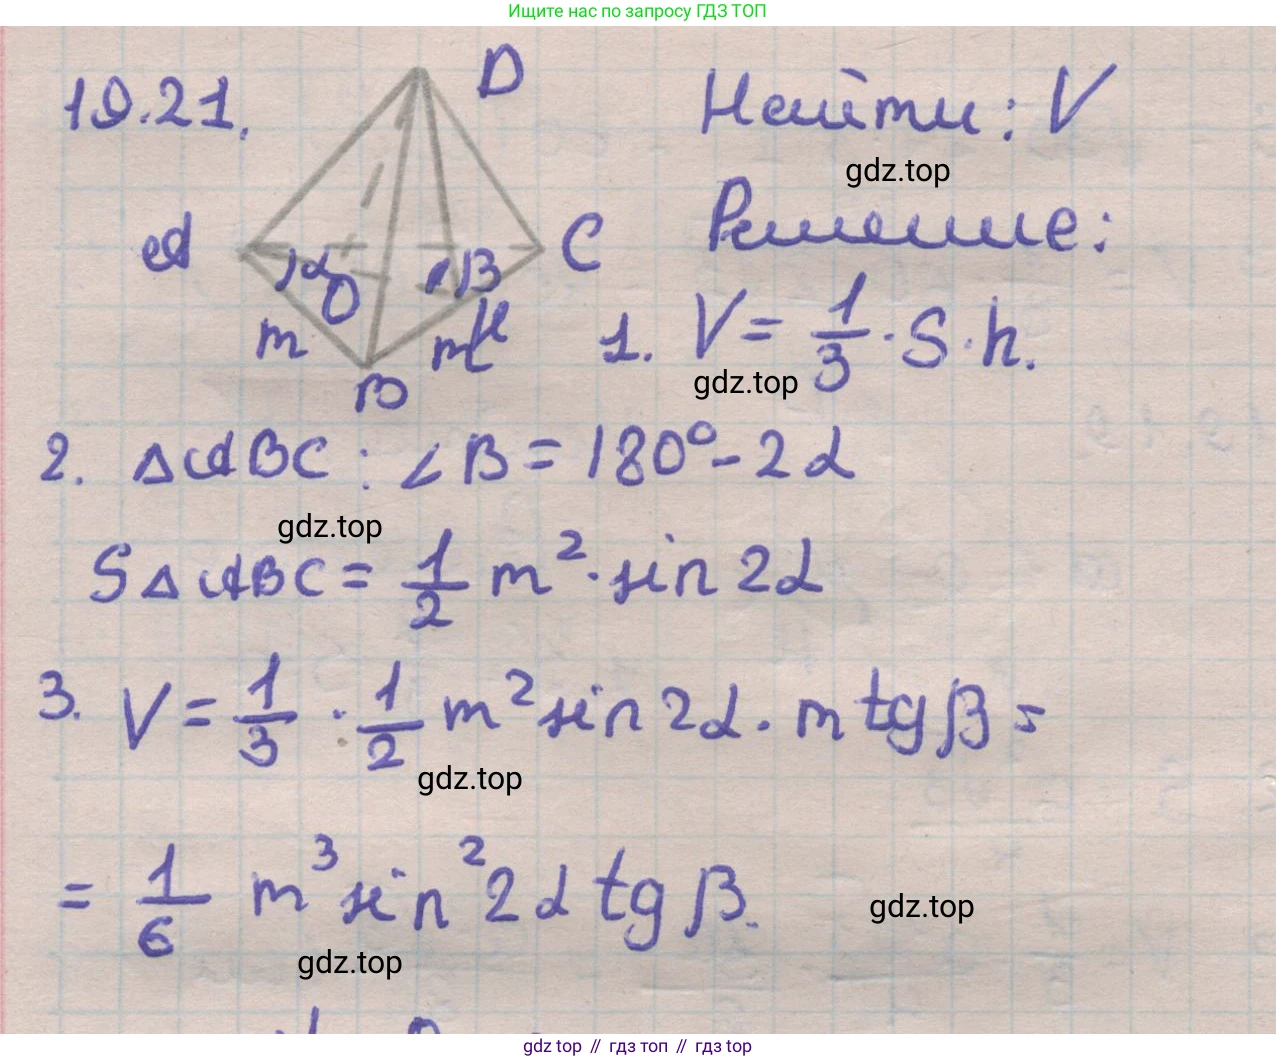 Ищите нас по запросу ГДЗ ТОП
19.21.
D
Найти: V
gdz.top
A
C
Решение:
α
O
β
m
m
H
B
1. V = 1/3 · S · h.
gdz.top
2. △ABC: ∠B = 180° - 2α
gdz.top
S△ABC = 1/2 m² · sin 2α
3. V = 1/3 · 1/2 m² sin 2α · m tg β =
gdz.top
= 1/6 m³ sin² 2α tg β.
gdz.top
gdz.top
gdz top // гдз топ // гдз top